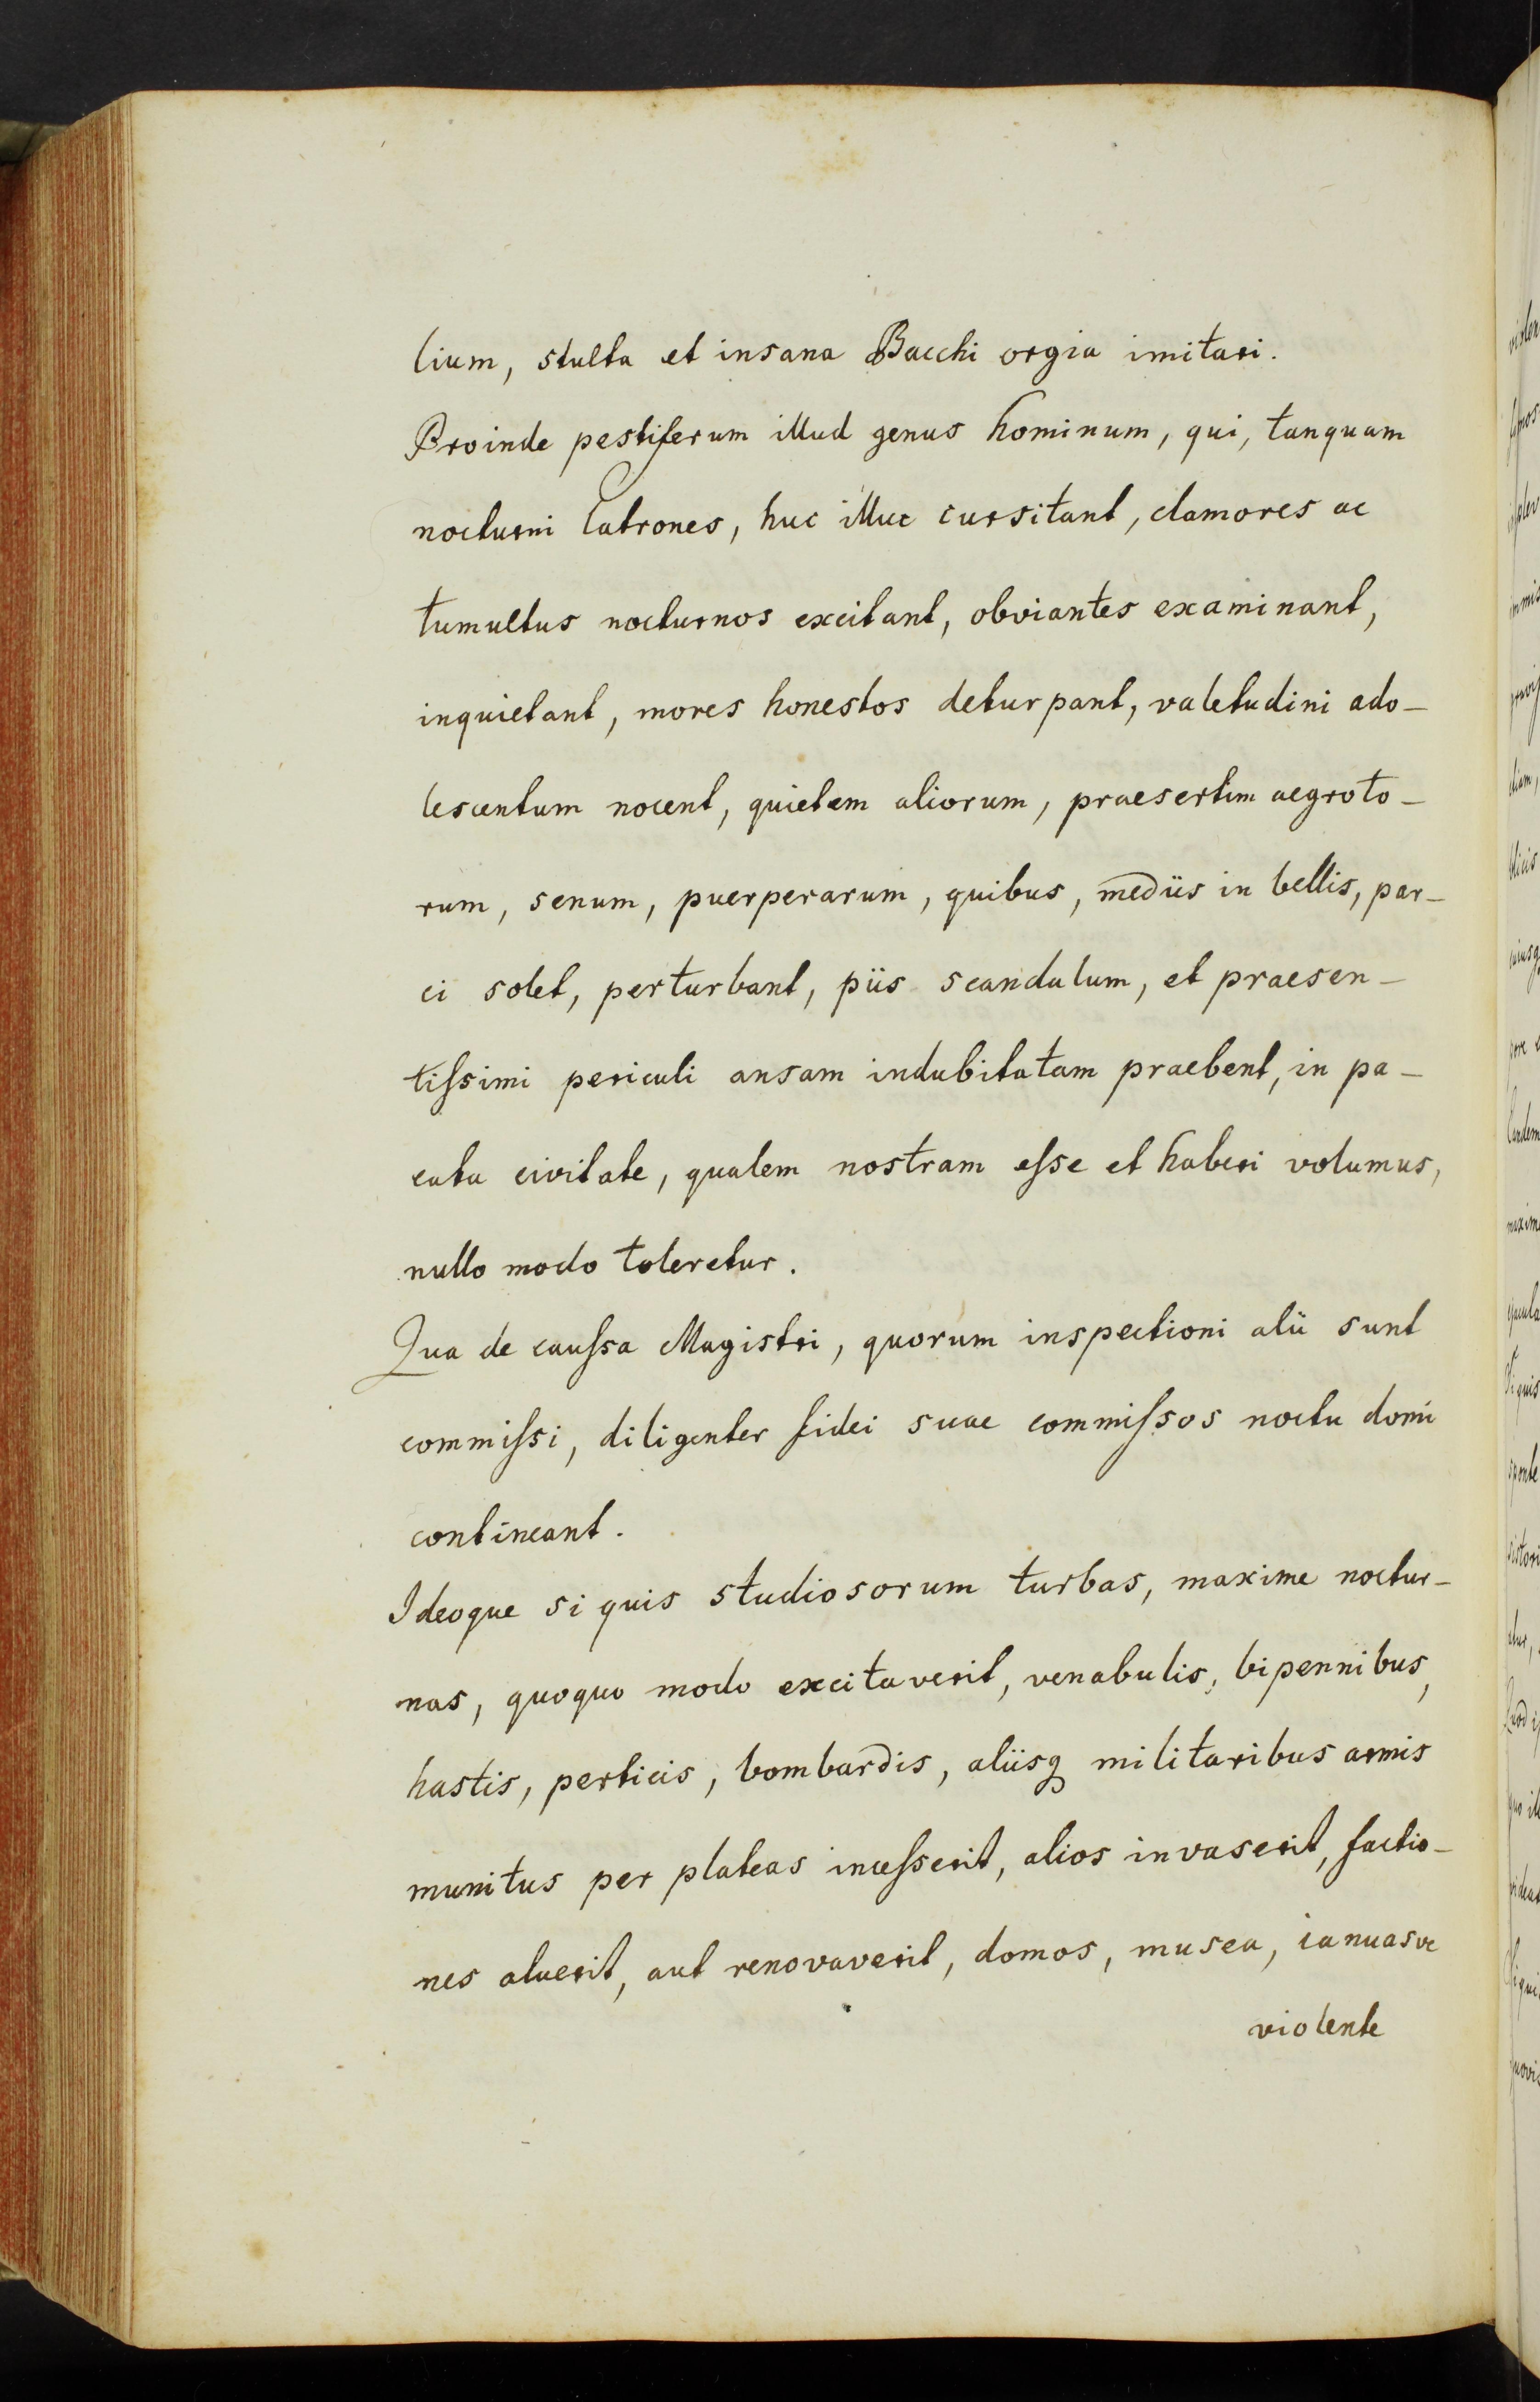 lium, stulta et insana Bacchi orgia imitari.
Proinde pestiferum illud genus hominum, qui, tanquam
nocturni latrones, huc illuc cursitant, clamores ac
tumultus nocturnos excitant, obviantes examinant,
inquietant, mores honestos deturpant, valetudini ado-
lescentum nocent, quietem aliorum, praesertim aegroto-
rum, senum, puerperarum, quibus, mediis in bellis, par-
ci solet, perturbant, piis scandalum, et praesen-
tiſsimi periculi ansam indubitatam praebent, in pa-
cata civitate, qualem nostram eſse et haberi volumus,
nullo modo toleretur.
Qua de cauſsa Magistri, quorum inspectioni alii sunt
commiſsi, diligenter fidei suae commiſsos noctu domi
contineant.
Ideoque si quis studiosorum turbas, maxime noctur-
nas, quoquo modo excitaverit, venabulis, bipennibus,
hastis, perticis, bombardis, aliisq militaribus armis
munitus per plateas inceſserit, alios invaserit, factio-
nes aluerit, aut renovaverit, domos, musea, ianuasve
violente